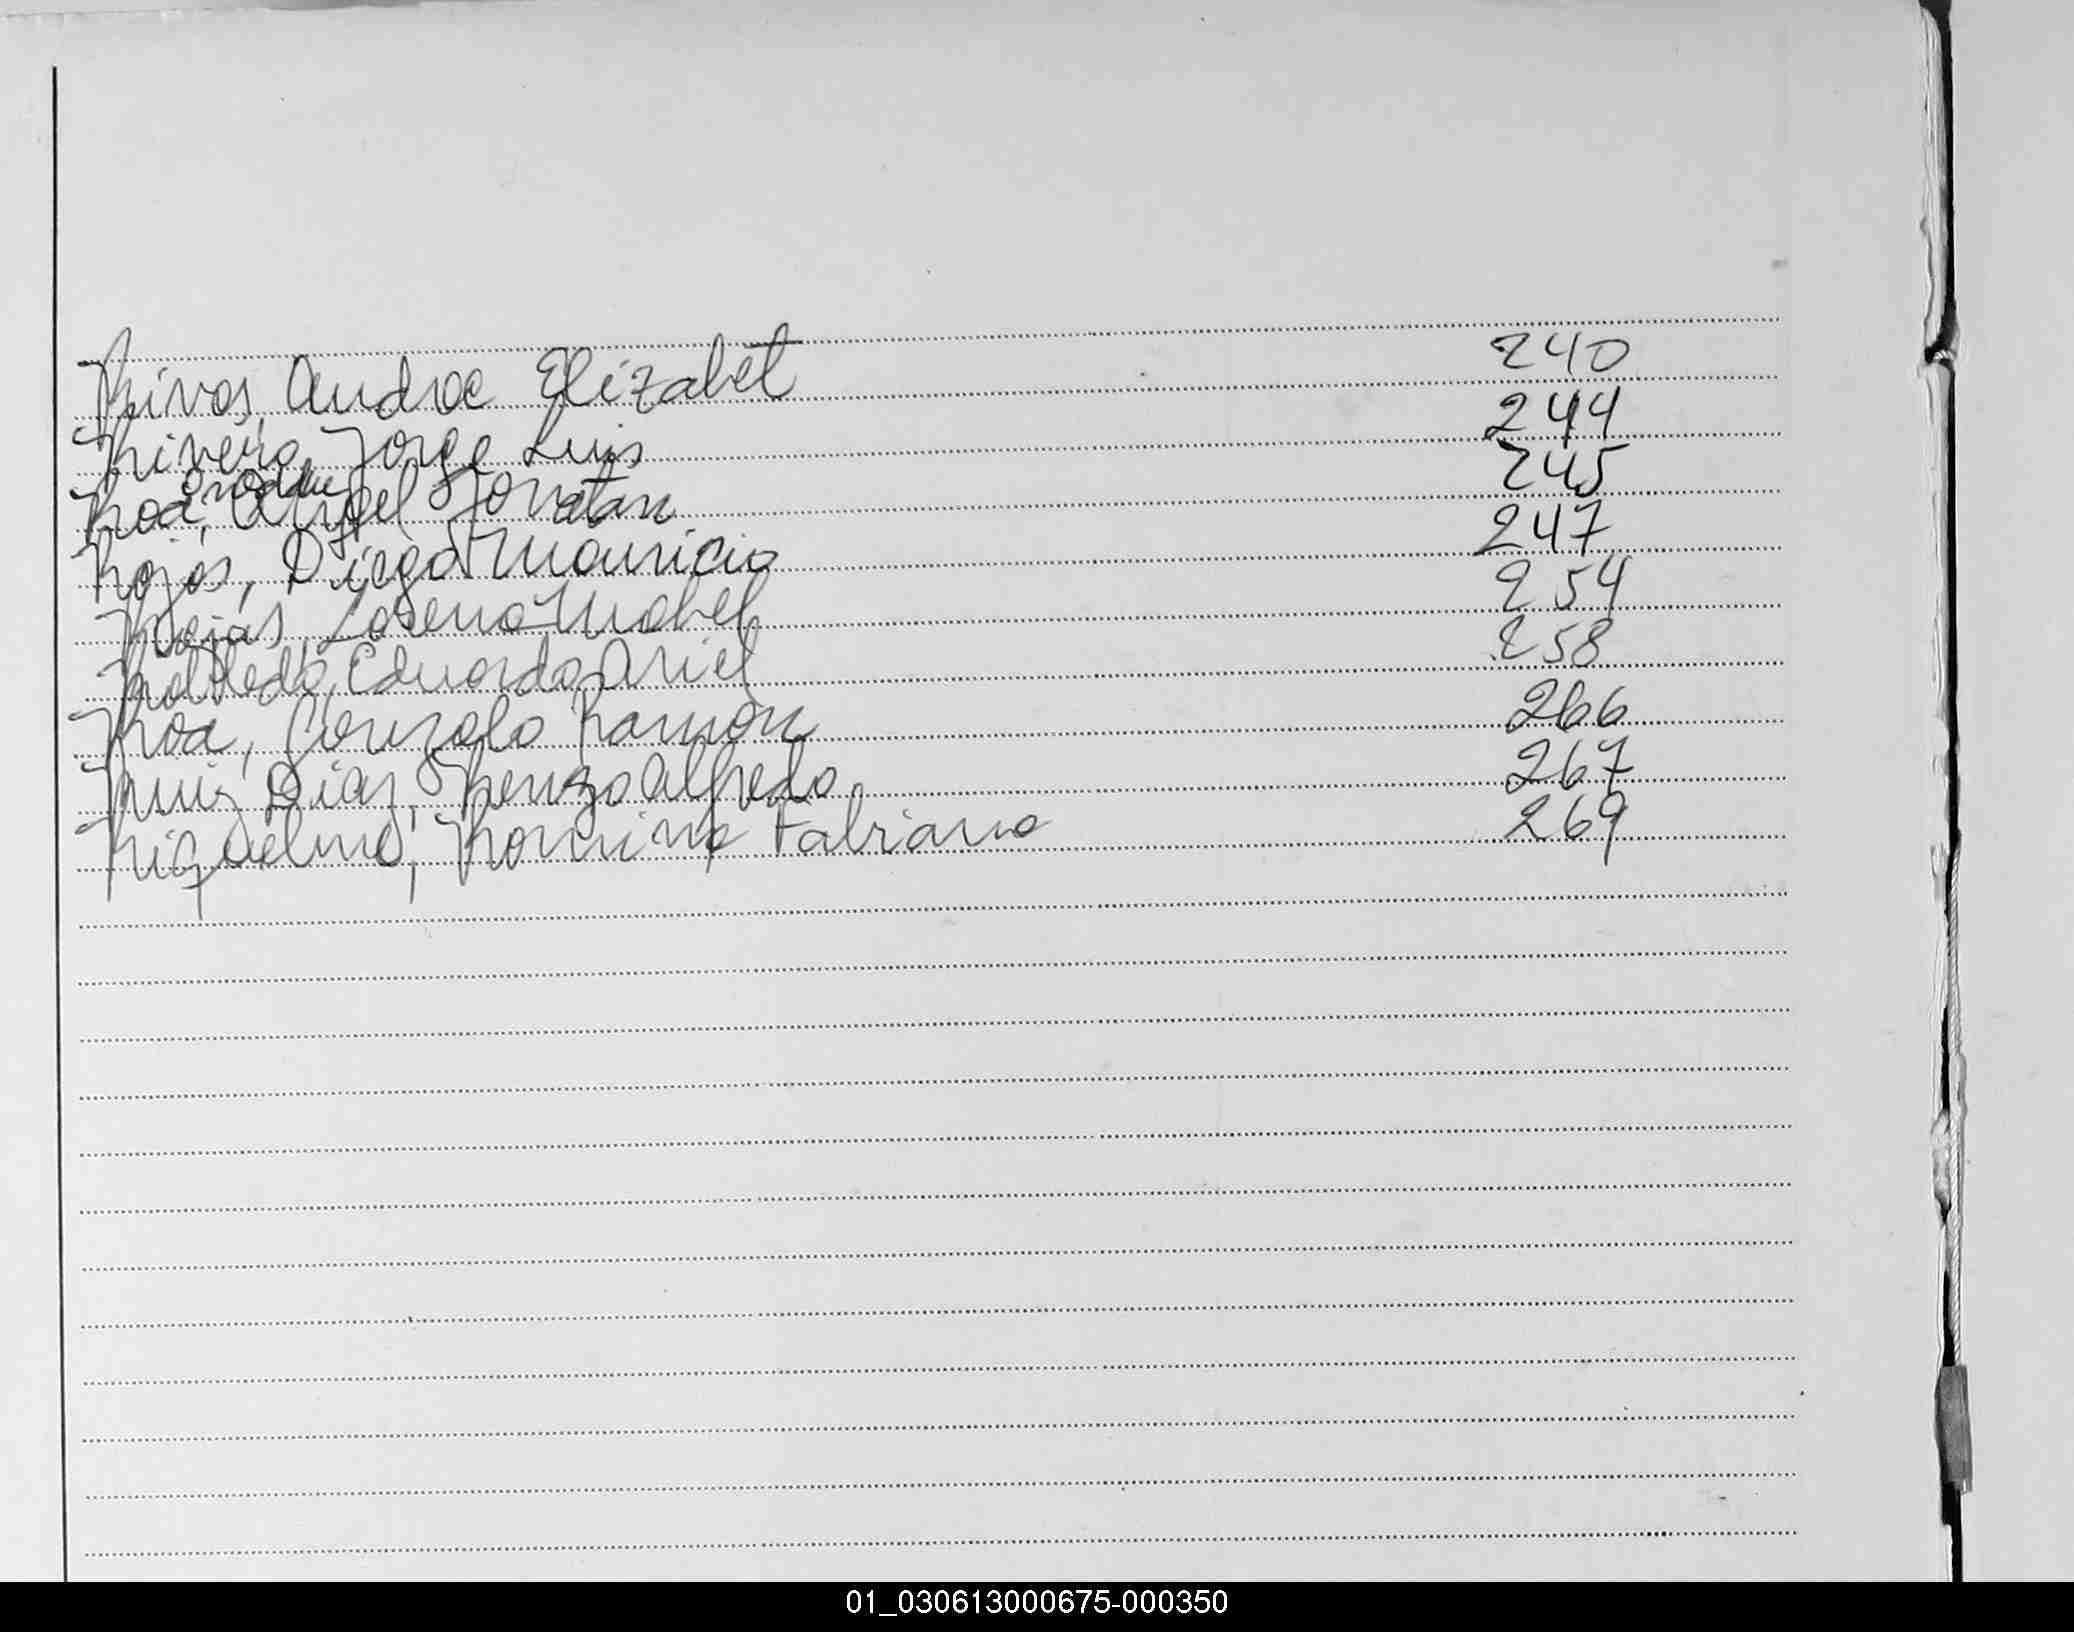 Rivas, Andrea Elizabet 240
Rivero, Jorge Luis 244
Roa, Angel Jonatan 245
Rojas, Diego Mauricio 247
Rojas, Lorena Mabel 254
Robledo, Eduardo Ariel 258
Roa, Gonzalo Ramón 266
Ruiz Diaz, Renzo Alfredo 267
Riquelme, Romina Fabiana 269
01_030613000675-000350